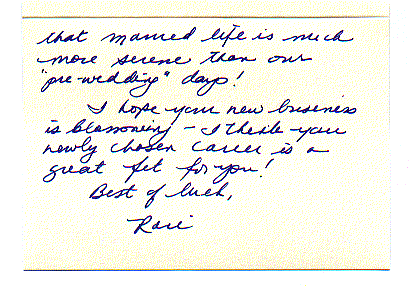 that married life is much
more serene than our
"pre-wedding" days!
I hope your new business
is blossoming - I think your
newly chosen career is a
great fit for you!
Best of luck,
Rosi